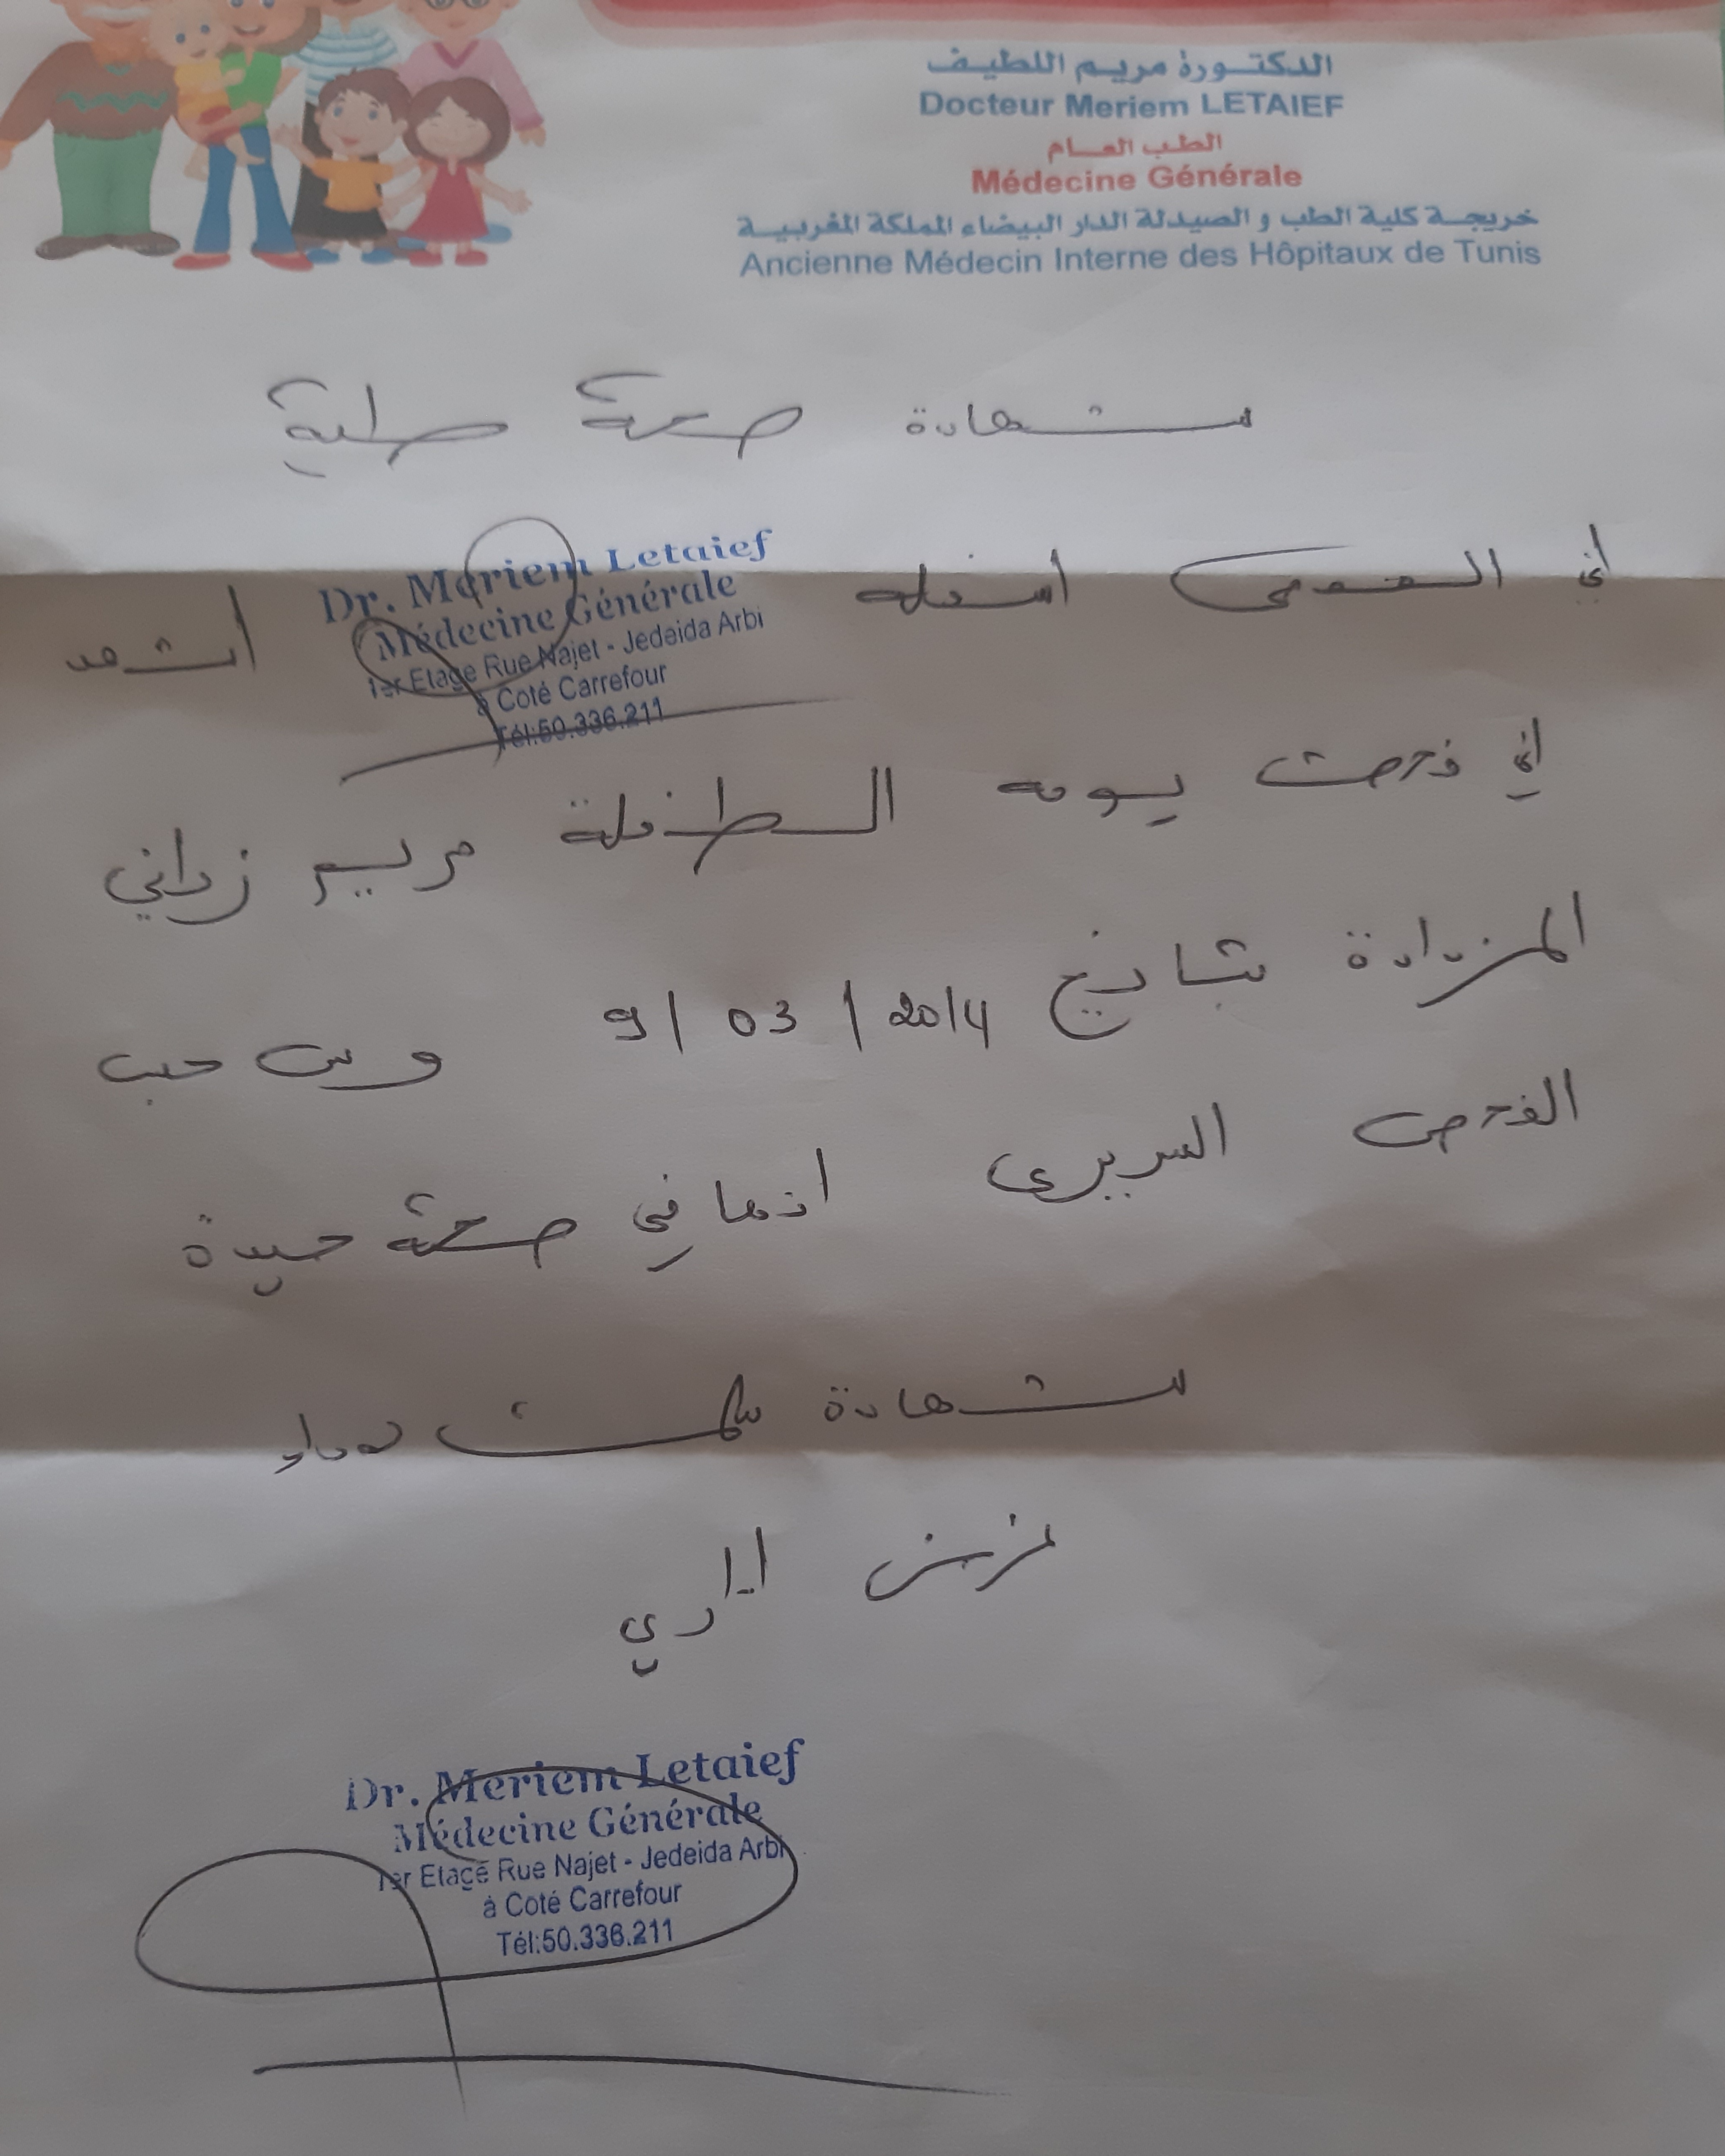 الدكتورة مريم اللطيف
Docteur Meriem LETAIEF
الطب العام
Médecine Générale
خريجة كلية الطب و الصيدلة الدار البيضاء المملكة المغربية
Ancienne Médecin Interne des Hôpitaux de Tunis
شهادة صحة طبية
اني الممضي أسفله
Dr. Meriem Letaief
Médecine Générale
1er Etage Rue Najet - Jedeida Arbi
à Coté Carrefour
Tél:50.336.211
أشهد
اني فحصت يومه الطفلة مريم زداني
المزدادة بتاريخ 9/ 03 / 2014 و حسب
الفحص السريري انها في صحة جيدة
شهادة سلمت
Dr. Meriem Letaief
Médecine Générale
1er Etage Rue Najet - Jedeida Arbi
à Coté Carrefour
Tél:50.336.211